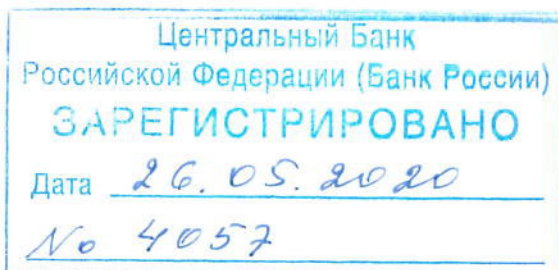 Центральный Банк
Российской Федерации (Банк России)
ЗАРЕГИСТРИРОВАНО
Дата 26.05.2020
№ 4057